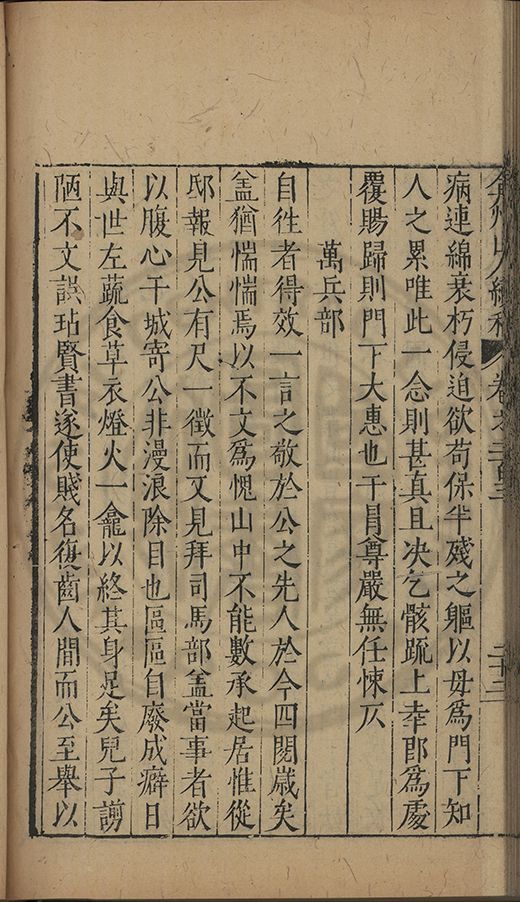 弇州山人續稿 卷之二百三 二十三
病連綿衰朽侵迫欲苟保半殘之軀以毋爲門下知
人之累唯此一念則甚真且决乞骸疏上幸郎爲處
覆賜歸則門下大惠也干冐尊嚴無任悚仄
萬兵部
自徃者得效一言之敬於公之先人於今四閱歲矣
盖猶惴惴焉以不文爲愧山中不能數承起居惟從
邸報見公有尺一徵而又見拜司馬部盖當事者欲
以腹心干城寄公非漫浪除目也區區自廢成癖日
與世左蔬食草衣燈火一龕以終其身足矣兒子謭
陋不文誤玷賢書遂使賤名復齒人間而公至舉以